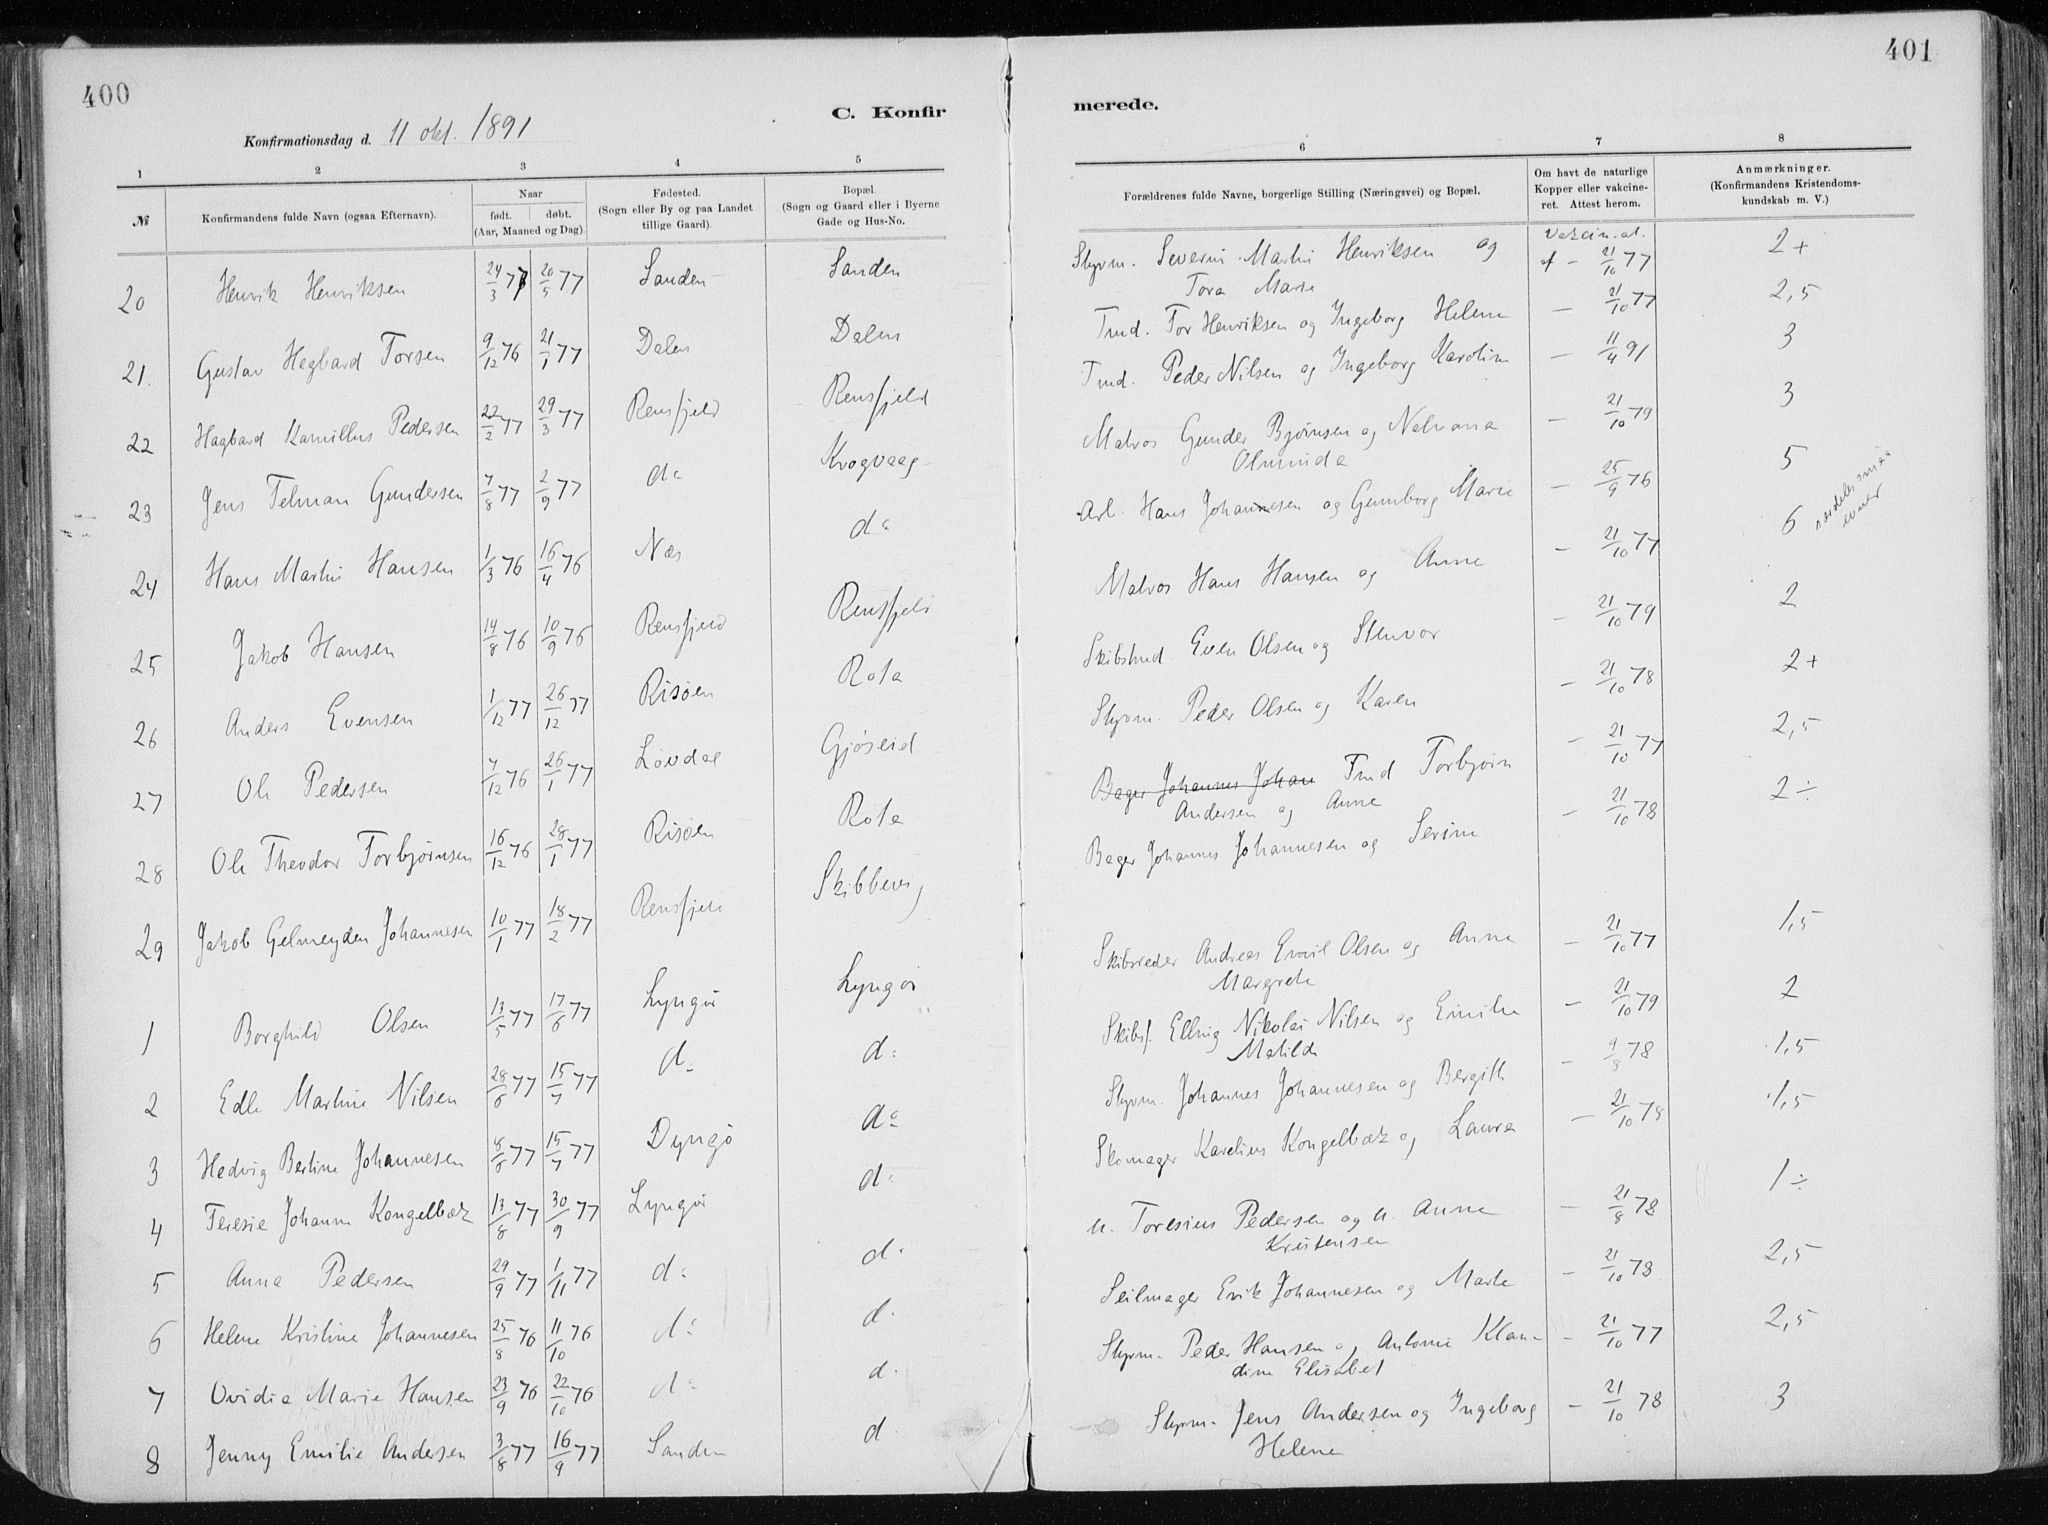 400
401
C. Konfir
merede.
Konfirmationsdag d. 11 okt. 1891
1 2 3 4 5 6 7 8
№ Konfirmandens fulde Navn (ogsaa Efternavn). Naar født. døbt. (Aar, Maaned og Dag). Fødested. (Sogn eller By og paa Landet tillige Gaard). Bopæl. (Sogn og Gaard eller i Byerne Gade og Hus-No. Forældrenes fulde Navne, borgerlige Stilling (Næringsvei) og Bopæl. Om havt de naturlige Kopper eller vakcineret. Attest herom. Anmærkninger. (Konfirmandens Kristendomskundskab m. V.)
20 Henrik Henriksen 24/3 77 20/5 77 Sanden Sanden Styrm. Severin Martin Henriksen og Tora Marie Vakcin. at. af – 21/10 77 2+
21. Gustav Hagbard Torsen 9/12 76 21/1 77 Dalen Dalen Tmd. Tor Henriksen og Ingeborg Helene – 21/10 77 2,5
22 Hagbard Kamillus Pedersen 22/2 77 29/3 77 Rensfjeld Rensfjeld Tmd. Peder Nilsen og Ingeborg Karoline – 11/4 91 3
23 Jens Telman Gundersen 7/8 77 2/9 77 do Krogvaag Matros Gunder Bjørnsen og Olminda – 21/10 79 3
24 Hans Martin Hansen 1/3 76 16/4 76 Næs do Arb. Hans Johannesen og Gunnborg Marie – 25/9 76 5
25 Jakob Hansen 14/8 76 10/9 76 Rensfjeld Rensfjeld Matros Hans Hansen og Anne – 21/10 77 6 særdeles smaa evner
26 Anders Evensen 1/12 77 26/12 77 Risøen Rota Skibstmd. Even Olsen og Stenvor – 21/10 79 2
27 Ole Pedersen 7/12 76 26/1 77 Løvdal Gjøseid Styrm. Peder Olsen og Karen – 21/10 78 2+
28 Ole Theodor Torbjørnsen 16/12 76 28/1 77 Risøen Rota Bager Johannes Johan Tmd Torbjørn Andersen og Anne – 21/10 77 2,5
29 Jakob Gelmeyden Johannesen 10/1 77 18/2 77 Rensfjeld Skibbevig Bager Johannes Johannesen og Serine – 21/10 78 2÷
1 Borghild Olsen 13/5 77 17/6 77 Lyngør Lyngør Skibsreder Andreas Emil Olsen og Anna Margrete – 21/10 77 1,5
2 Edle Martine Nilsen 28/6 77 15/7 77 do do Skibsf. Elling Nikolai Nilsen og Emilie Matilde – 21/10 79 2
3 Hedvig Bertine Johannesen 8/6 77 15/7 77 Dyngø do Styrm. Johannes Johannesen og Bergith – 9/8 78 1,5
4 Teresie Johanne Kongelbæk 13/8 77 30/9 77 Lyngør do Skomager Karelius Kongelbæk og Laura – 21/10 78 1,5
5 Anna Pedersen 29/9 77 1/11 77 do do U. Toresius Pedersen og U. Anne Kristensen – 21/8 78 1÷
6 Helene Kristine Johannesen 25/8 76 11/10 76 do do Seilmager Erik Johannesen og Marte – 21/10 78 2,5
7 Ovidia Marie Hansen 23/9 76 22/10 76 do do Styrm. Peder Hansen og Antonie Klaudine Elisabet – 21/10 77 2,5
8 Jenny Emilie Andersen 3/8 77 16/9 77 Sanden do Styrm. Jens Andersen og Ingeborg Helene – 21/10 78 3